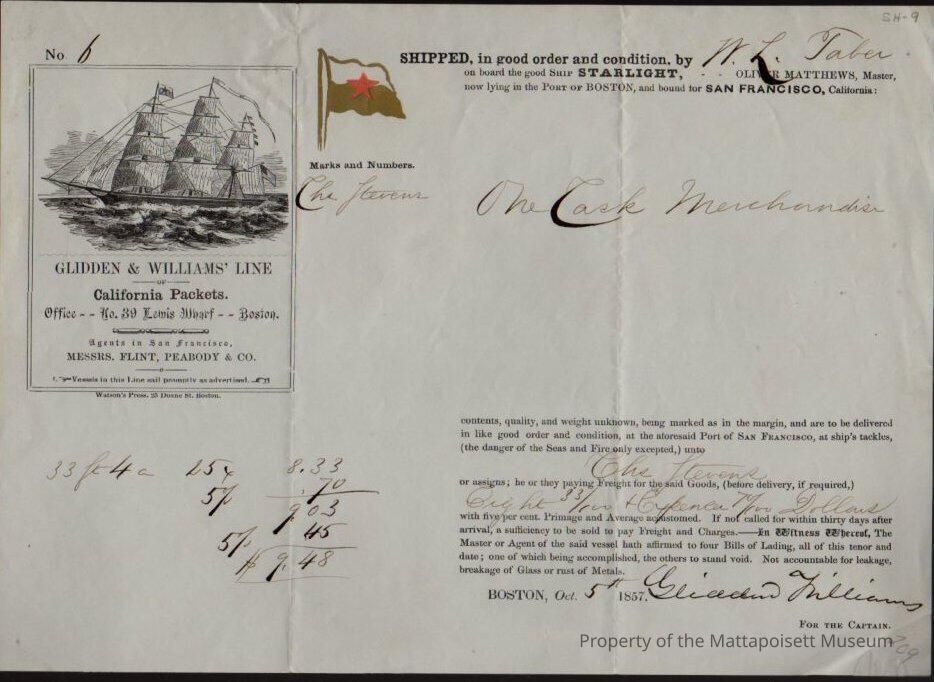 SH-9
No. 6
SHIPPED, in good order and condition, by W. L. Taber
on board the good Ship STARLIGHT, - - OLIVER MATTHEWS, Master,
now lying in the Port of BOSTON, and bound for SAN FRANCISCO, California:
Marks and Numbers.
Chs Stevens
One Cask Merchandise
GLIDDEN & WILLIAMS' LINE
OF
California Packets.
Office - - No. 39 Lewis Wharf - - Boston.
Agents in San Francisco,
MESSRS. FLINT, PEABODY & CO.
Vessels in this Line sail promptly as advertised.
Watson's Press, 25 Doane St. Boston.
contents, quality, and weight unknown, being marked as in the margin, and are to be delivered
in like good order and condition, at the aforesaid Port of San Francisco, at ship's tackles,
(the danger of the Seas and Fire only excepted,) unto
Chs Stevens
or assigns; he or they paying Freight for the said Goods, (before delivery, if required,)
Eight 33/100 + Expence 70/100 Dollars
with five per cent. Primage and Average accustomed. If not called for within thirty days after
arrival, a sufficiency to be sold to pay Freight and Charges.—In Witness Whereof, The
Master or Agent of the said vessel hath affirmed to four Bills of Lading, all of this tenor and
date; one of which being accomplished, the others to stand void. Not accountable for leakage,
breakage of Glass or rust of Metals.
33 ft 4 a 25 8.33
.70
9.03
5% 45
$ 9.48
BOSTON, Oct. 5th 1857. Glidden & Williams
For the Captain.
Property of the Mattapoisett Museum